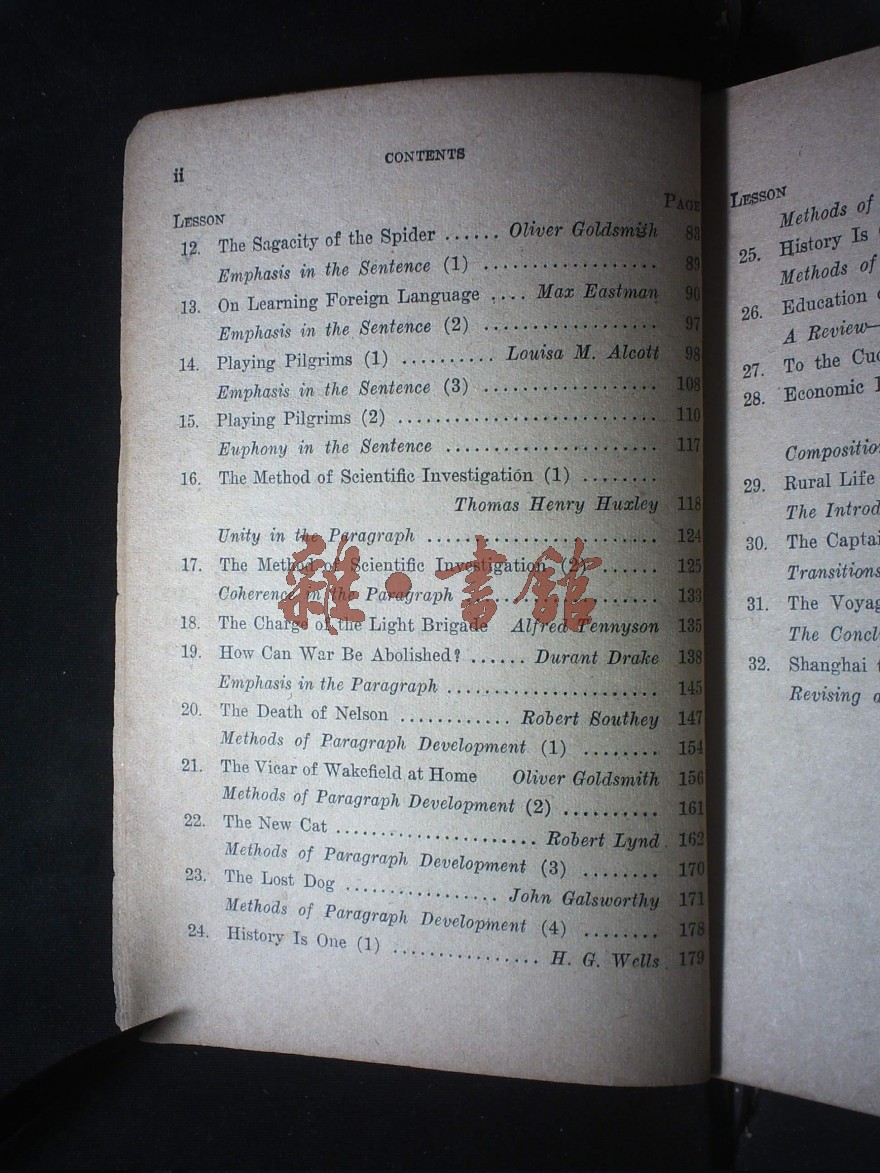 ii
CONTENTS
LESSON PAGE
12. The Sagacity of the Spider ...... Oliver Goldsmith 83
Emphasis in the Sentence (1) .................. 89
13. On Learning Foreign Language .... Max Eastman 90
Emphasis in the Sentence (2) .................. 97
14. Playing Pilgrims (1) .......... Louisa M. Alcott 98
Emphasis in the Sentence (3) .................. 108
15. Playing Pilgrims (2) ........................... 110
Euphony in the Sentence ...................... 117
16. The Method of Scientific Investigation (1) ........
Thomas Henry Huxley 118
Unity in the Paragraph ........................ 124
17. The Method of Scientific Investigation (2) ...... 125
Coherence in the Paragraph .................... 133
18. The Charge of the Light Brigade Alfred Tennyson 135
19. How Can War Be Abolished? ...... Durant Drake 138
Emphasis in the Paragraph ...................... 145
20. The Death of Nelson ............ Robert Southey 147
Methods of Paragraph Development (1) ........ 154
21. The Vicar of Wakefield at Home Oliver Goldsmith 156
Methods of Paragraph Development (2) .......... 161
22. The New Cat ...................... Robert Lynd 162
Methods of Paragraph Development (3) ........ 170
23. The Lost Dog ................. John Galsworthy 171
Methods of Paragraph Development (4) ........ 178
24. History Is One (1) ................ H. G. Wells 179
雜·書館
LESSON
Methods of
25. History Is
Methods of
26. Education
A Review—
27. To the
28. Economic
29. Rural Life
The
30. The
Transitions
31. The
The
32. Shanghai
Revising